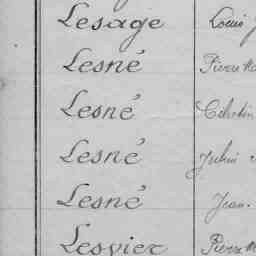 Lesage Louis
Lesné Pierre Ma
Lesné Célestin
Lesné Julien
Lesné Jean
Lesvier Pierre M